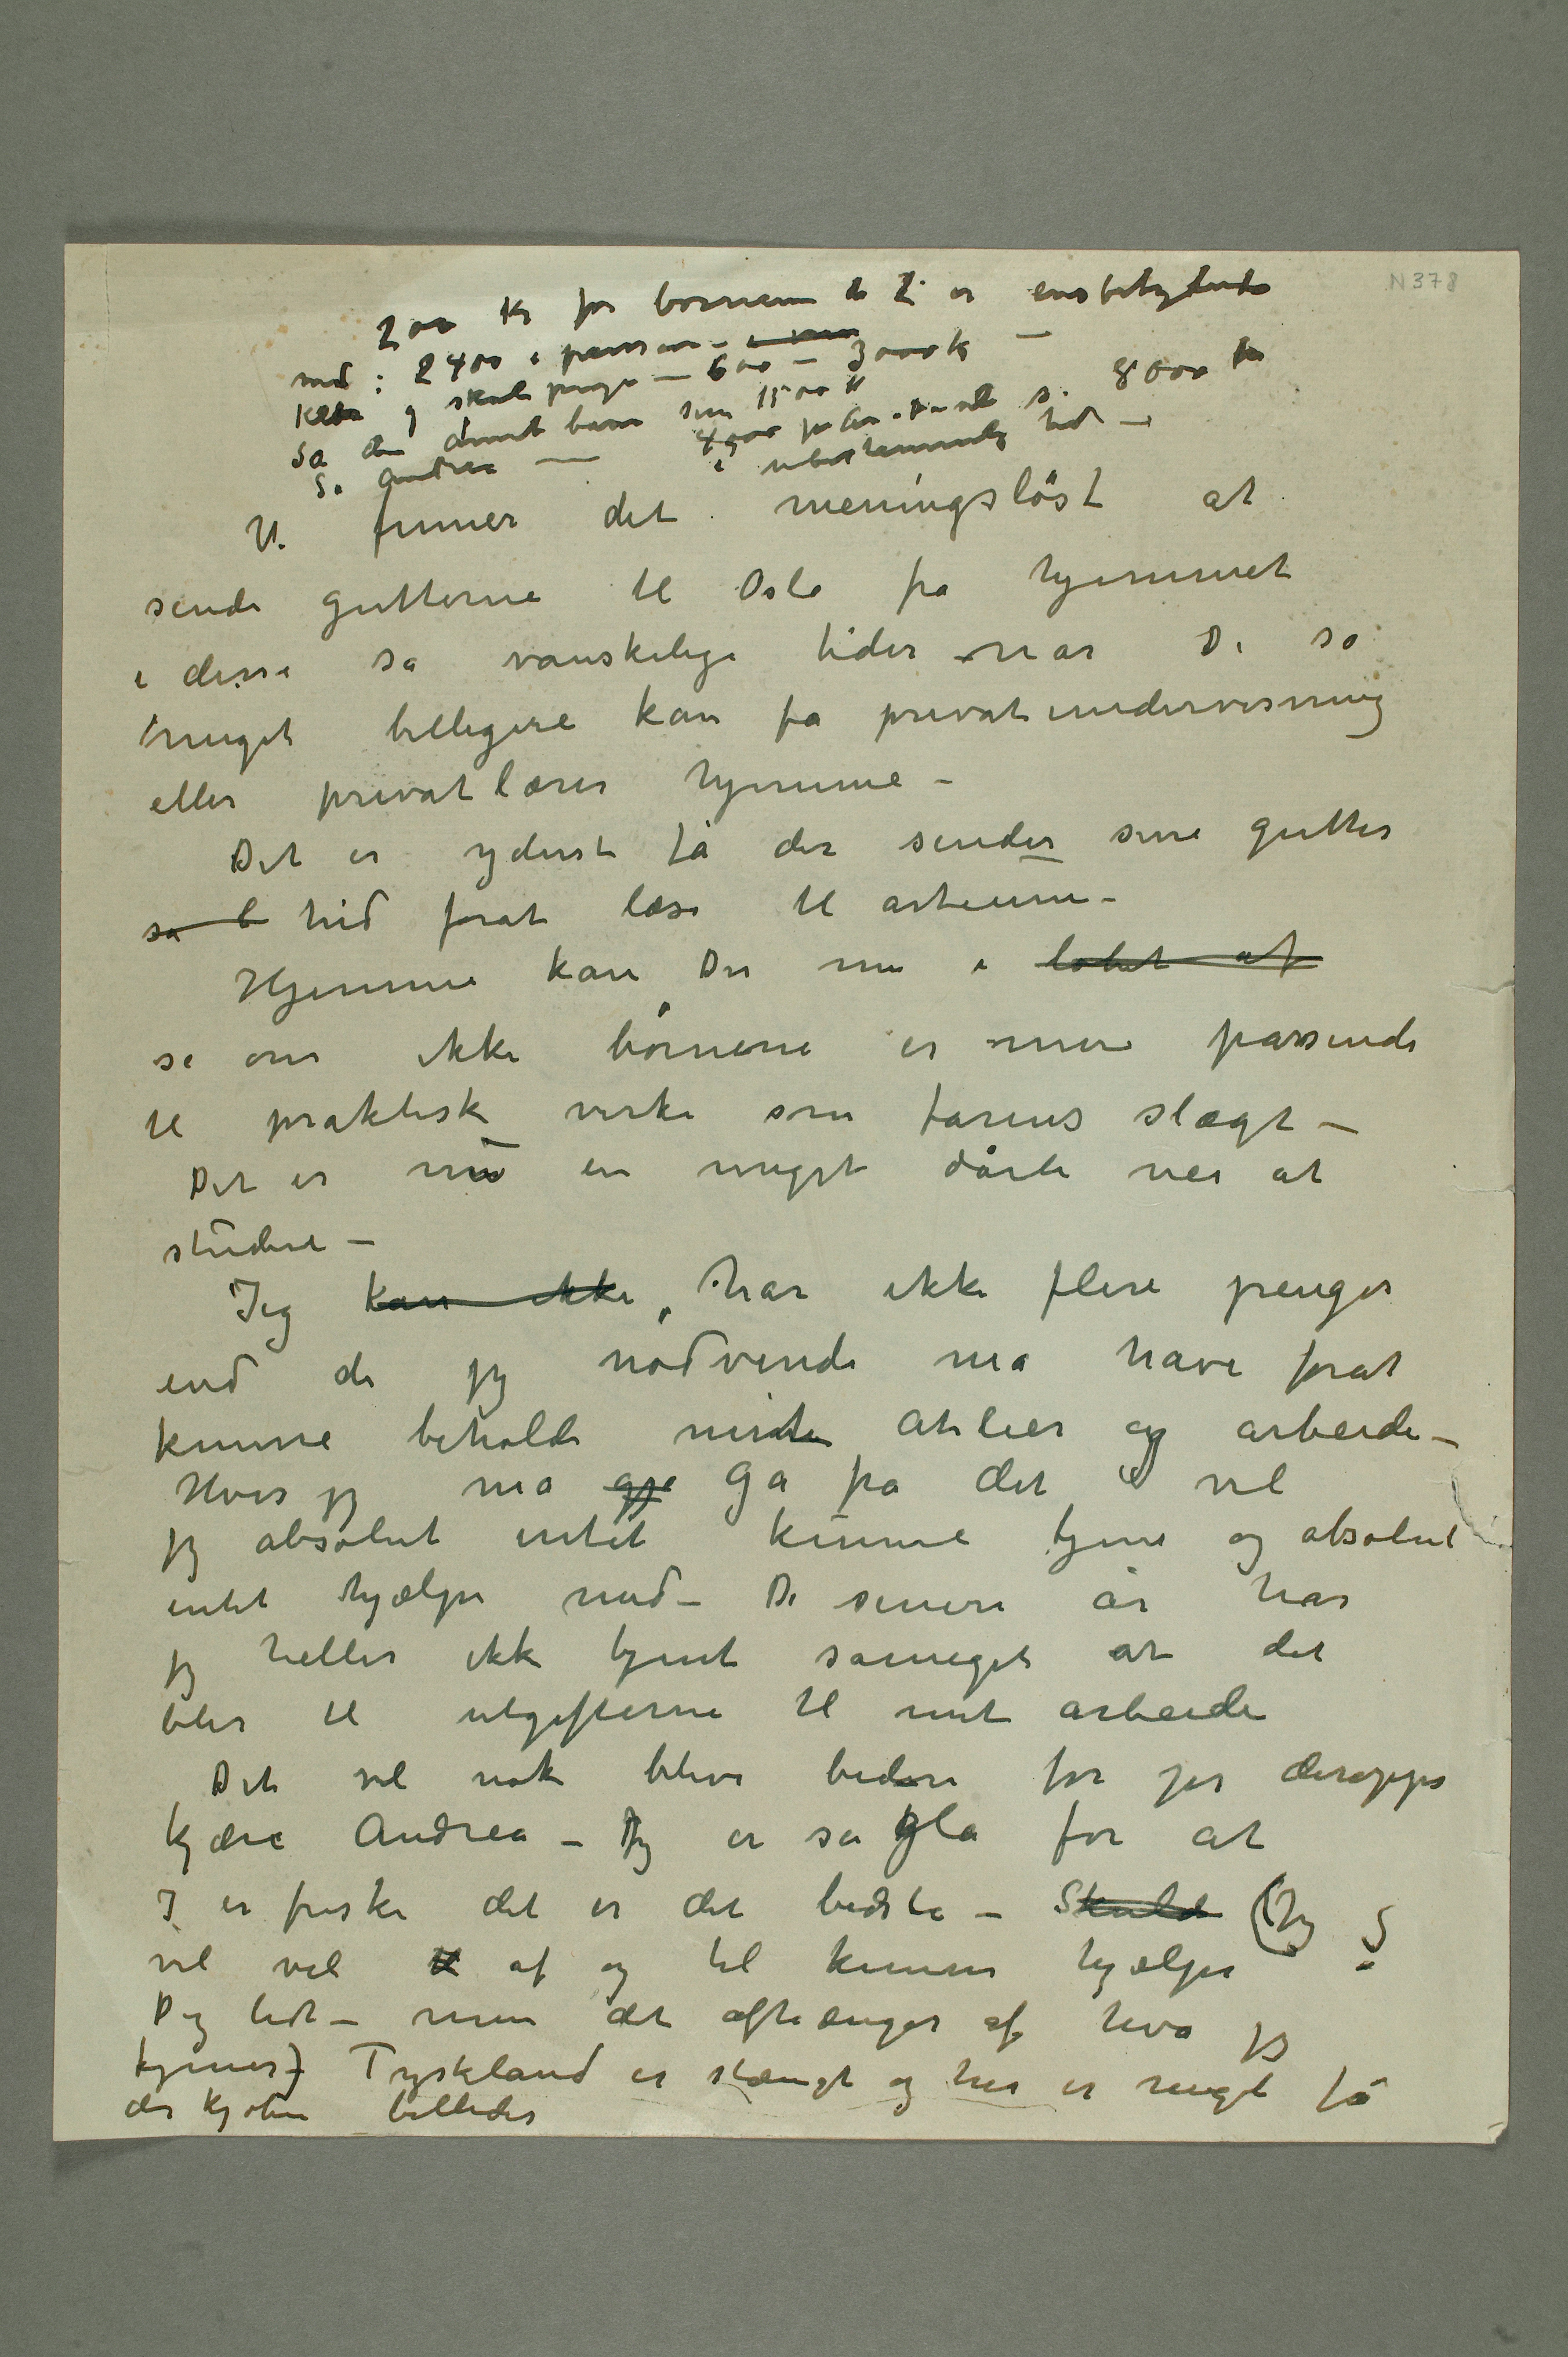 N 378
200 kr for børnene de 2 er ensbetydende
med: 2400 i pension –
Klær og skolepenge – 600 – 3000 k –
Så den andet barn som 1500 k
Så Andrea — 4500 8000 kr
i ubestemmelig tid –
Vi finner det meningsløst at
sende gutterne til Oslo fra hjemmet
i disse så vanskelige tider når Di så
meget billigere kan få privatundervisning
eller privatlærer hjemme –
Det er yderst få der sender sine gutter
så b hid forat læse til artium –
Hjemme kan Du nu i løbet af
se om ikke børnene er mere passende
til praktisk virke som farens slægt –
Det er nu en meget dårli vei at
studere –
Jeg kan ikke, har ikke flere penger
end de jeg nødvendi må have forat
kunne beholde mit atelier og arbeide –
Hvis jeg må gjø gå fra det vil
jeg absolut intet kunne tjene og absolut
intet hjælpe med – De senere år har
jeg heller ikke tjent såmeget at det
blir til utgifterne til mit arbeide
Det vil nok blive bedere for jer deroppe
kjære Andrea – Jeg er så gla for at
I er friske det er det bedste – Skulde (Jeg
vil vel af og til kunne hjælpe
Dig lidt – men det afhænger af hva jeg
tjener) Tyskland er stængt og her er meget få
der kjøber billeder